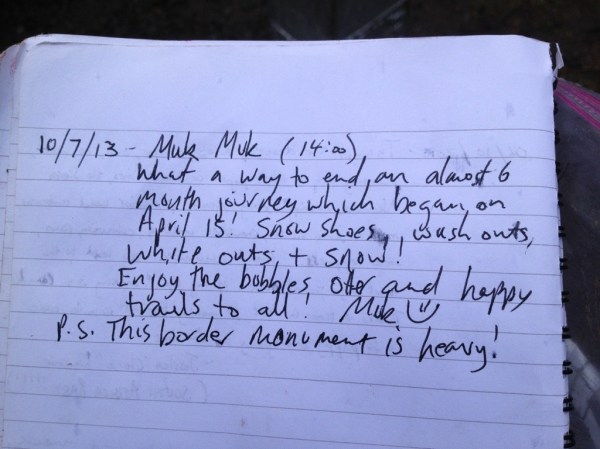 10/7/13 - Muk Muk (14:00)
What a way to end an almost 6
month journey which began on
April 15! Snow shoes, wash outs,
white outs, + snow!
Enjoy the bobbles, Otter and happy
trails to all! Muk
P.S. This border monument is heavy!